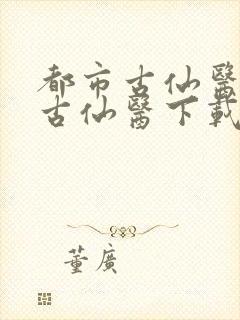 都市古仙醫
古仙醫下載
董廣